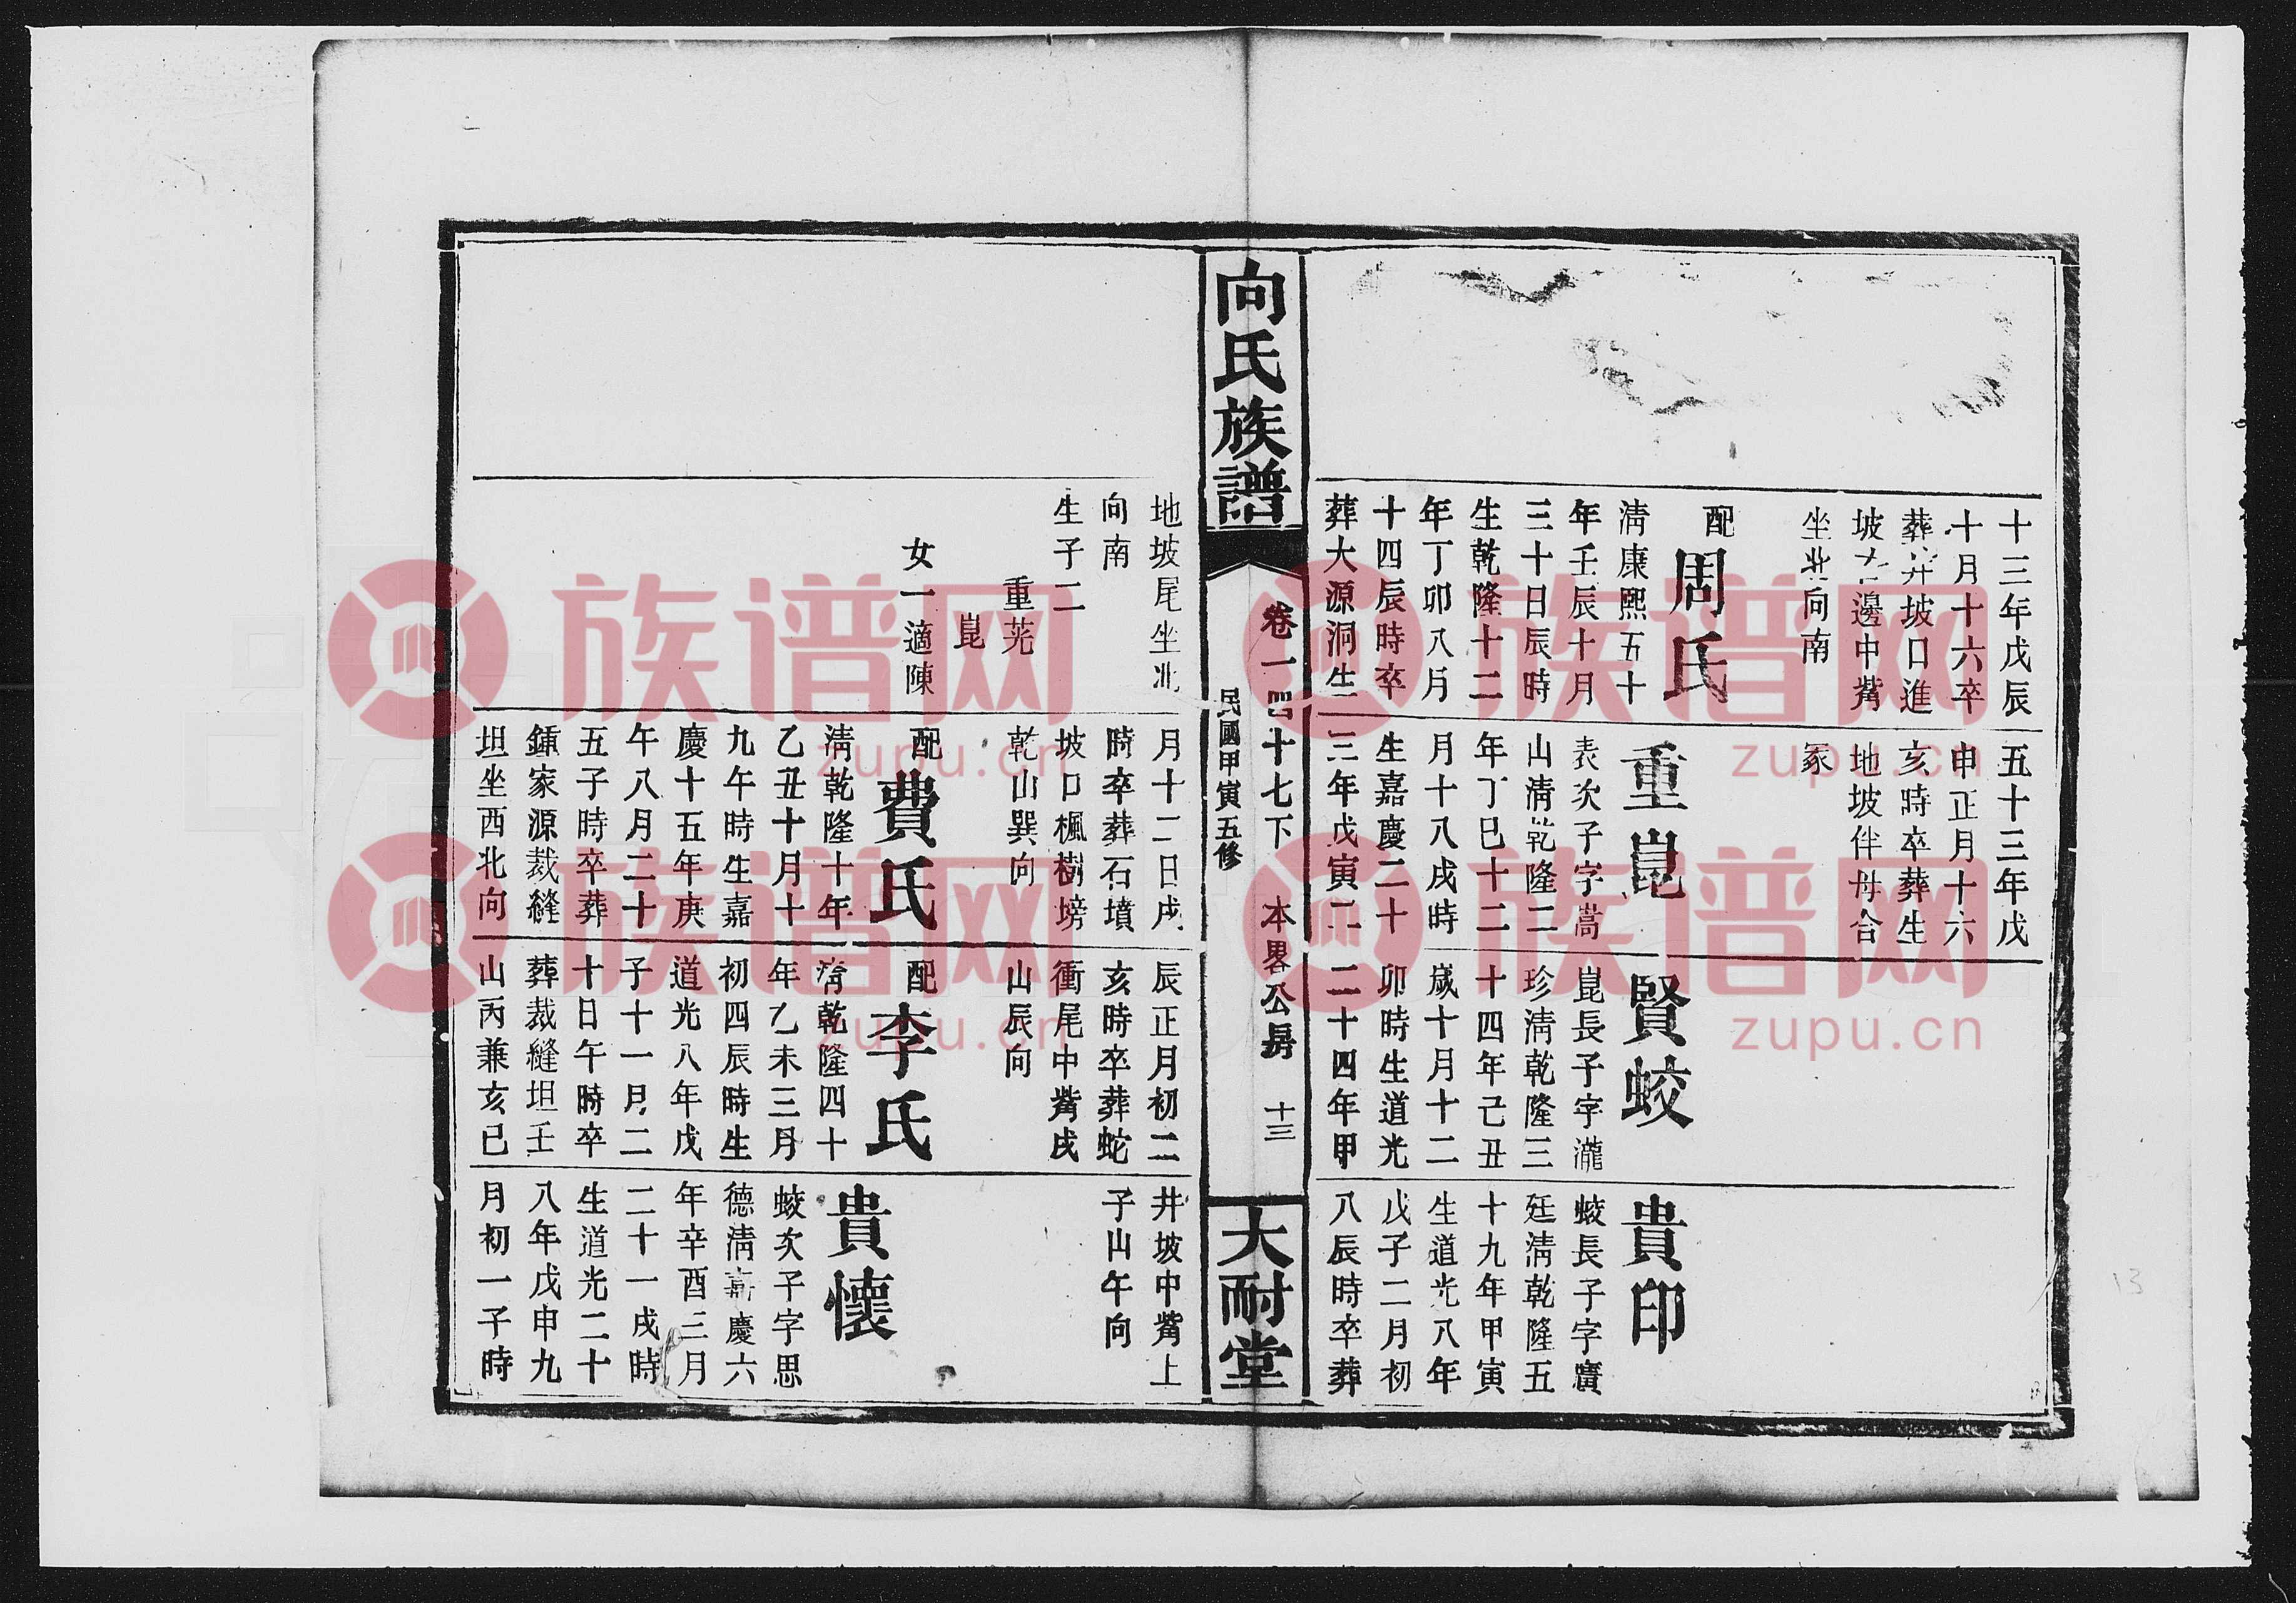 十三年戊辰
十月十六卒
葬井坡口進
坡右邊中觜
坐北向南
配
周氏
清康熙五十
年壬辰十月
三十日辰時
生乾隆十二
年丁卯八月
十四辰時卒
葬大源洞生
五十三年戊
申正月十六
亥時卒葬生
地坡伴母合
冢
重崑
表次子字嵩
山清乾隆二
年丁巳十二
月十八戌時
生嘉慶二十
三年戊寅二
賢蛟
崑長子字瀧
珍清乾隆三
十四年己丑
歲十月十二
卯時生道光
二十四年甲
貴印
蛟長子字廣
廷清乾隆五
十九年甲寅
生道光八年
戊子二月初
八辰時卒葬
向氏族譜
卷一四十七下 本畧公房 十三
民國甲寅五修
大耐堂
地坡尾坐北
向南
生子二
重茪
崑
女一適陳
月十二日戌
時卒葬石墳
坡口楓樹塝
乾山巽向
配
費氏
清乾隆十年
乙丑十月十
九午時生嘉
慶十五年庚
午八月二十
五子時卒葬
鍾家源裁縫
坦坐西北向
辰正月初二
亥時卒葬蛇
衝尾中觜戌
山辰向
配
李氏
清乾隆四十
年乙未三月
初四辰時生
道光八年戊
子十一月二
十日午時卒
葬裁縫坦壬
山丙兼亥巳
井坡中觜上
子山午向
貴懷
蛟次子字思
德清嘉慶六
年辛酉三月
二十一戌時
生道光二十
八年戊申九
月初一子時
族谱网
zupu.cn
族谱网
zupu.cn
族谱网
zupu.cn
族谱网
zupu.cn
13